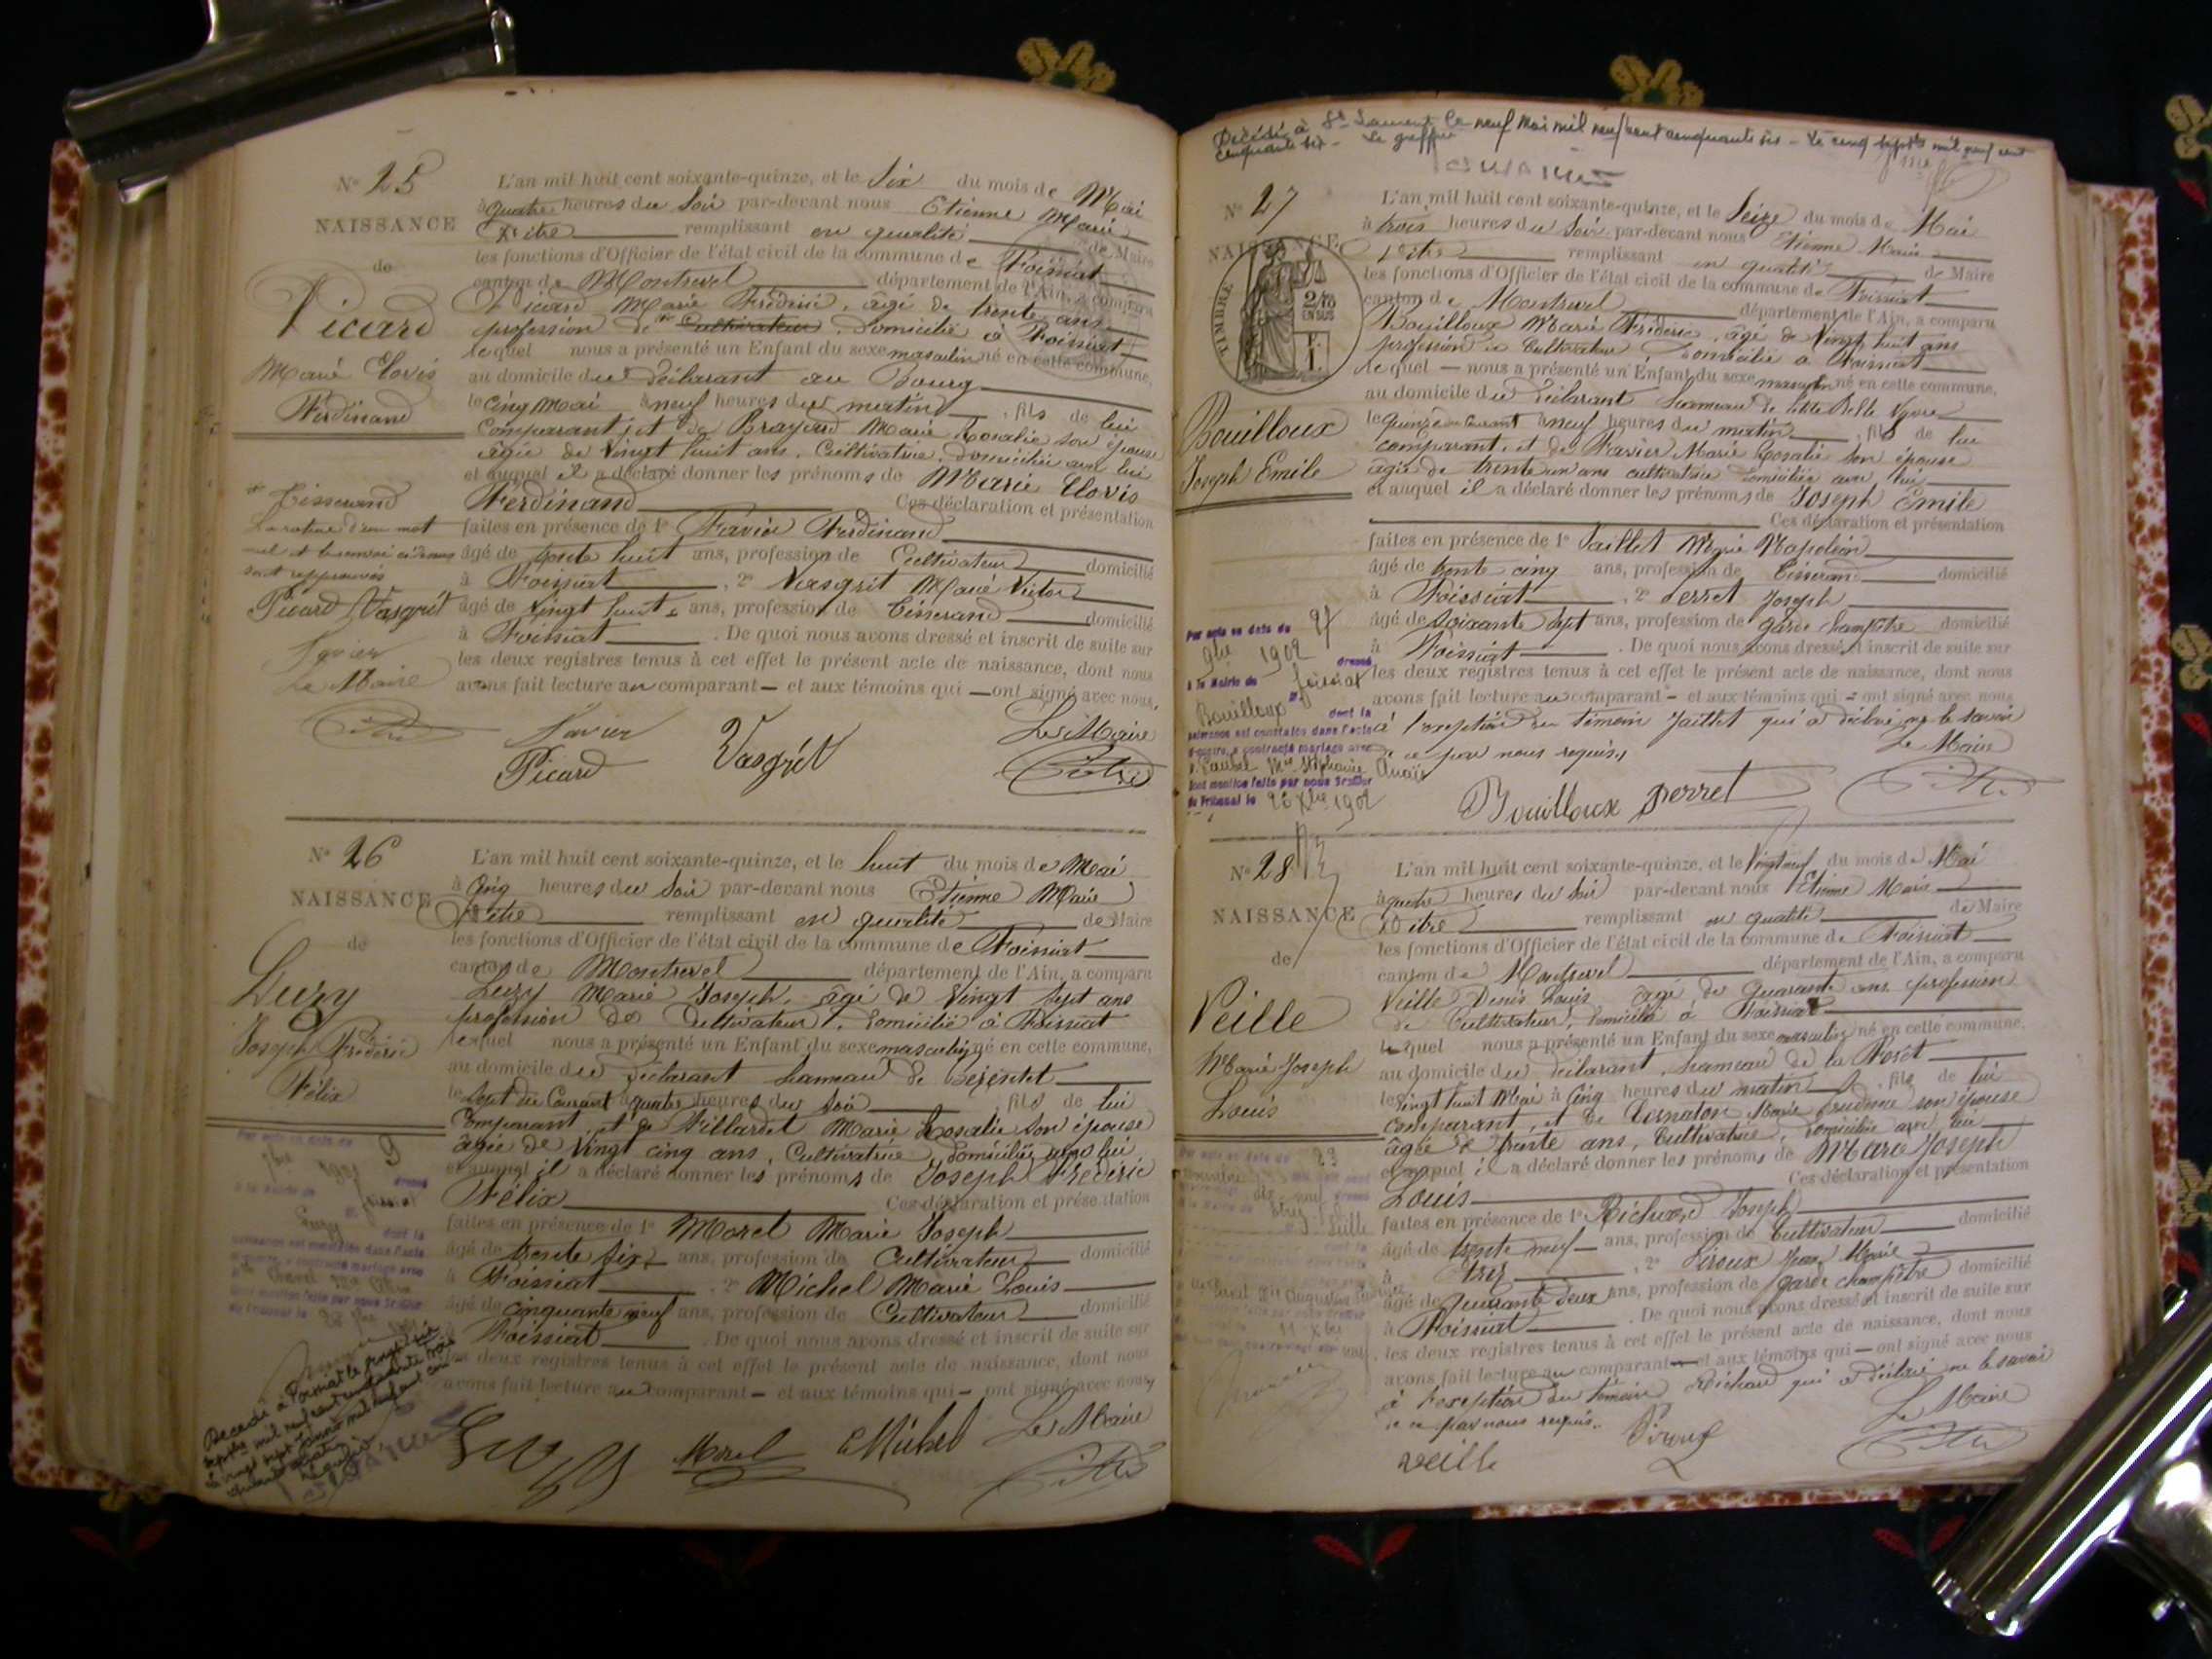 N° 25
NAISSANCE
de
Picard
Marie Clovis
Ferdinand
L'an mil huit cent soixante-quinze, et le Six du mois de Mai
à quatre heures du Soir par-devant nous Etienne Marie
Pitre remplissant en qualité de Maire
les fonctions d'Officier de l'état civil de la commune de Foissiat
canton de Montrevel département de l'Ain, a comparu
Picard Marie Frédéric, âgé de trente ans
profession de Cultivateur, domicilié à Foissiat
lequel nous a présenté un Enfant du sexe masculin né en cette commune,
au domicile du déclarant au Bourg
le cinq Mai à neuf heures du matin, fils de lui
comparant, et de Brayard Marie Rosalie son épouse
âgée de vingt huit ans, Cultivatrice, domiciliée avec lui
et auquel il a déclaré donner les prénoms de Marie Clovis
Ferdinand Ces déclaration et présentation
faites en présence de 1° Favier Ferdinand
âgé de trente huit ans, profession de Cultivateur domicilié
à Foissiat, 2° Vasgrit Marie Victor
âgé de vingt huit ans, profession de Tisserand domicilié
à Foissiat. De quoi nous avons dressé et inscrit de suite sur
les deux registres tenus à cet effet le présent acte de naissance, dont nous
avons fait lecture au comparant – et aux témoins qui – ont signé avec nous.
Tisserand
La rature d'un mot
nul et le renvoi ci-dessus
sont approuvés
Picard Vasgrit
Favier
Le Maire
Favier
Picard
Vasgrit
Le Maire
Pitre
N° 26
NAISSANCE
de
Luzy
Joseph Frédéric
Félix
L'an mil huit cent soixante-quinze, et le huit du mois de Mai
à Cinq heures du Soir par-devant nous Etienne Marie
Pitre remplissant en qualité de Maire
les fonctions d'Officier de l'état civil de la commune de Foissiat
canton de Montrevel département de l'Ain, a comparu
Luzy Marie Joseph, âgé de Vingt Sept ans
profession de Cultivateur, domicilié à Foissiat
lequel nous a présenté un Enfant du sexe masculin né en cette commune,
au domicile du déclarant hameau de
le Sept du Courant à quatre heures du Soir, fils de lui
comparant, et de Villardet Marie Rosalie son épouse
âgée de Vingt cinq ans, Cultivatrice, domiciliée avec lui
et auquel il a déclaré donner les prénoms de Joseph Frédéric
Félix Ces déclaration et présentation
faites en présence de 1° Morel Marie Joseph
âgé de trente six ans, profession de Cultivateur domicilié
à Foissiat, 2° Michel Marie Louis
âgé de cinquante neuf ans, profession de Cultivateur domicilié
à Foissiat. De quoi nous avons dressé et inscrit de suite sur
les deux registres tenus à cet effet le présent acte de naissance, dont nous
avons fait lecture au comparant – et aux témoins qui – ont signé avec nous
Luzy Morel Michel Le Maire
Pitre
Décédé à St Laurent le neuf Mai mil neuf cent cinquante six – Le cinq mil neuf cent
cinquante six – Le greffier
N° 27
NAISSANCE
TIMBRE
Bouilloux
Joseph Emile
L'an mil huit cent soixante-quinze, et le Seize du mois de Mai
à trois heures du Soir par-devant nous Etienne Marie
Pitre remplissant en qualité de Maire
les fonctions d'Officier de l'état civil de la commune de Foissiat
canton de Montrevel département de l'Ain, a comparu
Bouilloux Marie Frédéric, âgé de Vingt huit ans
profession de Cultivateur domicilié à Foissiat
lequel – nous a présenté un Enfant du sexe masculin né en cette commune,
au domicile du déclarant hameau de
le quinze du Courant à neuf heures du matin, fils de lui
comparant, et de Favier Marie Rosalie son épouse
âgée de trente un ans cultivatrice domiciliée avec lui
et auquel il a déclaré donner les prénoms de Joseph Emile
Ces déclaration et présentation
faites en présence de 1° Jaillet Marie Napoléon
âgé de trente cinq ans, profession de Tisserand domicilié
à Foissiat, 2° Perret Joseph
âgé de Soixante Sept ans, profession de garde champêtre domicilié
à Foissiat. De quoi nous avons dressé et inscrit de suite sur
les deux registres tenus à cet effet le présent acte de naissance, dont nous
avons fait lecture au comparant – et aux témoins qui – ont signé avec nous
à l'exception du témoin Jaillet qui a déclaré ne le savoir
de ce par nous requis.
Le Maire
Bouilloux Perret
Pitre
Par acte en date du
9bre 1902 dressé
à la Mairie de Foissiat
Bouilloux dont la
naissance est constatée dans l'acte
ci-contre, a contracté mariage avec
Dont mention faite par nous Greffier
du Tribunal le 26 Xbre 1902
N° 28
NAISSANCE
de
Veille
Marie Joseph
Louis
L'an mil huit cent soixante-quinze, et le Vingt neuf du mois de Mai
à quatre heures du Soir par-devant nous Etienne Marie
Pitre remplissant en qualité de Maire
les fonctions d'Officier de l'état civil de la commune de Foissiat
canton de Montrevel département de l'Ain, a comparu
Veille Denis Louis âgé de quarante ans, profession
de Cultivateur, domicilié à Foissiat
lequel nous a présenté un Enfant du sexe masculin né en cette commune,
au domicile du déclarant, hameau de la Forêt
le Vingt huit Mai à Cinq heures du matin, fils de lui
comparant, et de Cornaton Marie Prudence son épouse
âgée de trente ans, Cultivatrice, domiciliée avec lui
et auquel il a déclaré donner les prénoms de Marie Joseph
Louis Ces déclaration et présentation
faites en présence de 1° Richard Joseph
âgé de trente neuf – ans, profession de Cultivateur domicilié
à, 2° Piroux Jean Marie
âgé de quarante deux ans, profession de garde champêtre domicilié
à Foissiat. De quoi nous avons dressé et inscrit de suite sur
les deux registres tenus à cet effet le présent acte de naissance, dont nous
avons fait lecture au comparant – et aux témoins qui – ont signé avec nous
à l'exception du témoin Richard qui a déclaré ne le savoir
de ce par nous requis.
Le Maire
veille Piroux
Pitre